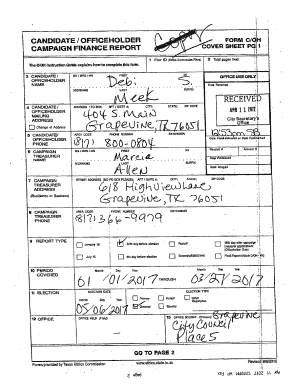 COPY
CANDIDATE / OFFICEHOLDER
CAMPAIGN FINANCE REPORT
FORM C/OH
COVER SHEET PG 1
The C/OH Instruction Guide explains how to complete this form.
1 Filer ID
2 Total pages filed:
3 CANDIDATE / OFFICEHOLDER NAME
MS / MRS / MR FIRST MI
Debi S.
LAST SUFFIX
Meek
OFFICE USE ONLY
RECEIVED
APR 11 2017
City Secretary's
Office
4 CANDIDATE / OFFICEHOLDER MAILING ADDRESS
Change of Address
ADDRESS / PO BOX; APT / SUITE #; CITY; STATE; ZIP CODE
404 S. Main
Grapevine, TX 76051
5 CANDIDATE / OFFICEHOLDER PHONE
AREA CODE PHONE NUMBER EXTENSION
(817) 800-0804
6 CAMPAIGN TREASURER NAME
MS / MRS / MR FIRST MI
Marcia
LAST SUFFIX
Allen
Receipt # Amount $
7 CAMPAIGN TREASURER ADDRESS
(Residence or Business)
STREET ADDRESS (NO PO BOX PLEASE); APT / SUITE #; CITY; STATE; ZIP CODE
618 Highview Lane
Grapevine, TX 76051
8 CAMPAIGN TREASURER PHONE
AREA CODE PHONE NUMBER EXTENSION
(817) 366-9979
9 REPORT TYPE
January 15
30th day before election
Runoff
July 15
8th day before election
10 PERIOD COVERED
Month Day Year
01/01/2017 THROUGH 03/27/2017
11 ELECTION
ELECTION DATE
Month Day Year
05/06/2017
ELECTION TYPE
Primary
Runoff
General
Special
12 OFFICE
OFFICE HELD (if any)
13 OFFICE SOUGHT (if known)
Grapevine
City Council
Place 5
GO TO PAGE 2
Forms provided by Texas Ethics Commission
www.ethics.state.tx.us